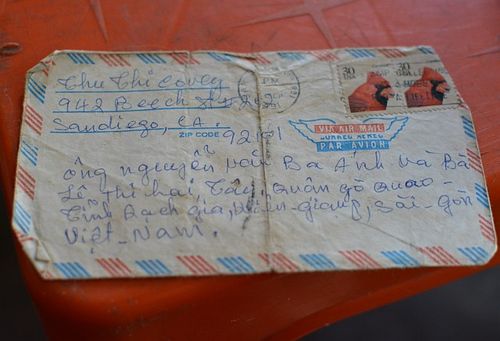 Thu Thi Covey
942 Beech St #
Sandiego, CA.
ZIP CODE 92101
30 30
PM
VIA AIR MAIL
CORREO AEREO
PAR AVION
ông nguyễn văn Ba Anh Va Bà
Lê Thi hai Tây, Quân gò Quao -
Tỉnh Rach gia, Kiên-giang, Sài-gòn
Việt-Nam.